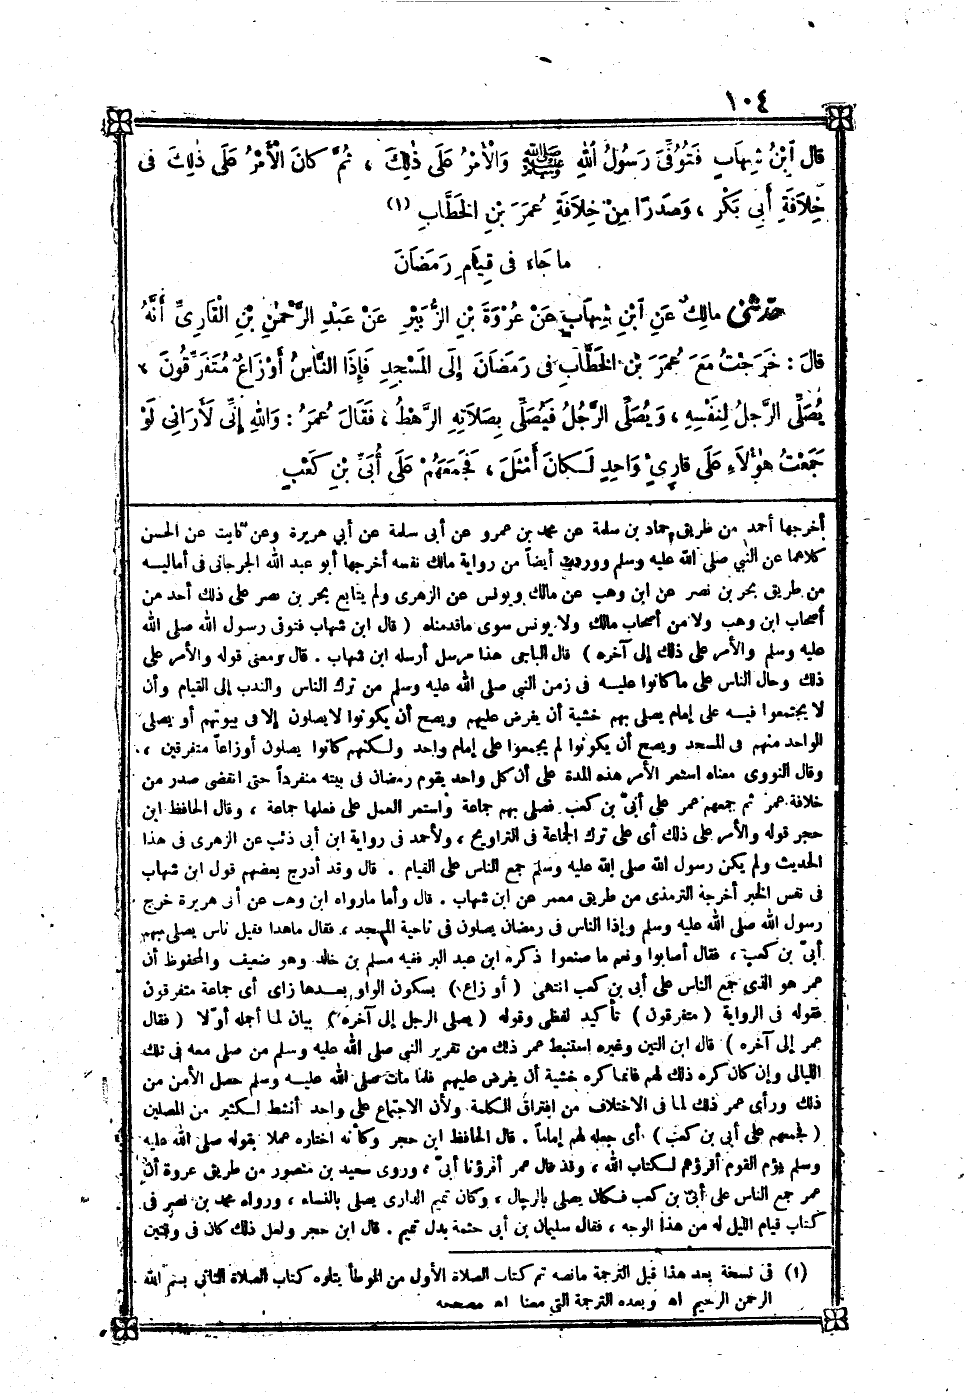 ١٠٤
قال ابْنُ شِهَابٍ فَتُوُفِّىَ رَسُولُ اللهِ ﷺ وَالْأَمْرُ عَلَى ذٰلِكَ ، ثُمَّ كانَ الْأَمْرُ عَلَى ذٰلِكَ فى
خِلَافَةِ أَبِي بَكْرٍ ، وَصَدْرًا مِنْ خِلَافَةِ عُمَرَ بْنِ الخَطَّابِ (١)
ما جَاءَ فى قِيَامِ رَمَضَانَ
حَدَّثَنى مالِكٌ عَنِ ابْنِ شِهَابٍ عَنْ عُرْوَةَ بْنِ الزُّبَيْرِ عَنْ عَبْدِ الرَّحْمٰنِ بْنِ الْقَارِىِّ أَنَّهُ
قالَ : خَرَجْتُ مَعَ عُمَرَ بْنِ الخَطَّابِ فى رَمَضَانَ إِلَى المَسْجِدِ فَإِذَا النَّاسُ أَوْزَاعٌ مُتَفَرِّقُونَ ،
يُصَلِّى الرَّجلُ لِنَفْسِهِ ، وَيُصَلِّى الرَّجُلُ فَيُصَلِّى بِصَلَاتِهِ الرَّهْطُ ، فَقَالَ عُمَرُ : وَاللهِ إِنِّى لَأَرَانِى لَوْ
جَمَعْتُ هٰؤُلَاءِ عَلَى قارِىءٍ وَاحِدٍ لَكانَ أَمْثَلَ ، فَجَمَعَهُمْ عَلَى أُبَىِّ بْنِ كَعْبٍ
أخرجها أحمد من طريق حماد بن سلمة عن محمد بن عمرو عن أبى سلمة عن أبي هريرة وعن ثابت عن الحسن
كلاهما عن النبي صلى الله عليه وسلم ووردت أيضاً من رواية مالك نفسه أخرجها أبو عبد الله الجرجانى فى أماليـه
من طريق بحر بن نصر عن ابن وهب عن مالك ويونس عن الزهرى ولم يتابع بحر بن نصر على ذلك أحد من
أصحاب ابن وهب ولا من أصحاب مالك ولا يونس سوى ماقدمناه ( قال ابن شهاب فتوفى رسول الله صلى الله
عليه وسلم والأمر على ذلك إلى آخره ) قال الباجى هذا مرسل أرسله ابن شهاب . قال ومعنى قوله والأمر على
ذلك وحال الناس على ماكانوا عليـه فى زمن النبي صلى الله عليه وسلم من ترك الناس والندب إلى القيام وأن
لا يجتمعوا فيـه على إمام يصلى بهم خشية أن يفرض عليهم ويصح أن يكونوا لايصلون إلا فى بيوتهم أو يصلى
الواحد منهم فى المسجد ويصح أن يكونوا لم يجمعوا على إمام واحد ولكنهم كانوا يصلون أوزاعاً متفرقين ،
وقال النووى معناه استمر الأمر هذه المدة على أن كل واحد يقوم رمضان فى بيته منفرداً حتى انقضى صدر من
خلافة عمر ثم جمعهم عمر على أبىّ بن كعب فصلى بهم جماعة واستمر العمل على فعلها جماعة ، وقال الحافظ ابن
حجر قوله والأمر على ذلك أى على ترك الجماعة فى التراويح ، ولأحمد فى رواية ابن أبى ذئب عن الزهرى فى هذا
الحديث ولم يكن رسول الله صلى الله عليه وسلم جمع الناس على القيام . قال وقد أدرج بعضهم قول ابن شهاب
فى نفس الخبر أخرجة الترمذى من طريق معمر عن ابن شهاب . قال وأما مارواه ابن وهب عن أبى هريرة خرج
رسول الله صلى الله عليه وسلم وإذا الناس فى رمضان يصلون فى ناحية المسجد ، فقال ماهذا فقيل ناس يصلى بهم
أبىّ بن كعب ، فقال أصابوا ونعم ما صنعوا ذكره ابن عبد البر ففيه مسلم بن خالد وهو ضعيف والمحفوظ أن
عمر هو الذى جمع الناس على أبى بن كعب انتهى ( أو زاع ) بسكون الواو بعـدها زاى أى جماعة متفرقون
فقوله فى الرواية ( متفرقون ) تأكيد لفظى وقوله ( يصلى الرجل إلى آخره ) بيان لما أجمله أوّلا ( فقال
عمر إلى آخره ) قال ابن التين وغيره استنبط عمر ذلك من تقرير النبي صلى الله عليه وسلم من صلى معه فى تلك
الليالى وإن كان كره ذلك لهم فانما كره خشية أن يفرض عليهم فلما مات صلى الله عليـه وسلم حصل الأمن من
ذلك ورأى عمر ذلك لما فى الاختلاف من افتراق الكلمة ولأن الاجتماع على واحد أنشط لكثير من المصلين
( فجمعهم على أبي بن كعب ) أى جعله لهم إماماً . قال الحافظ ابن حجر وكأنه اختاره عملا بقوله صلى الله عليه
وسلم يؤم القوم أقرؤهم لكتاب الله ، وقد قال عمر أقرؤنا أبىّ ، وروى سعيد بن منصور من طريق عروة أن
عمر جمع الناس على أبىّ بن كعب فكان يصلى بالرجال ، وكان تميم الدارى يصلى بالنساء ، ورواه محمد بن نصر فى
كتاب قيام الليل له من هذا الوجه ، فقال سليمان بن أبى حثمة بدل تميم . قال ابن حجر ولعل ذلك كان فى وقتين
(١) فى نسخة بعد هذا قبل الترجمة مانصه تم كتاب الصلاة الأول من الموطأ يتلوه كتاب الصلاة الثانى بسم الله
الرحمن الرحيم اهـ وبعده الترجمة التى معنا اهـ مصححه